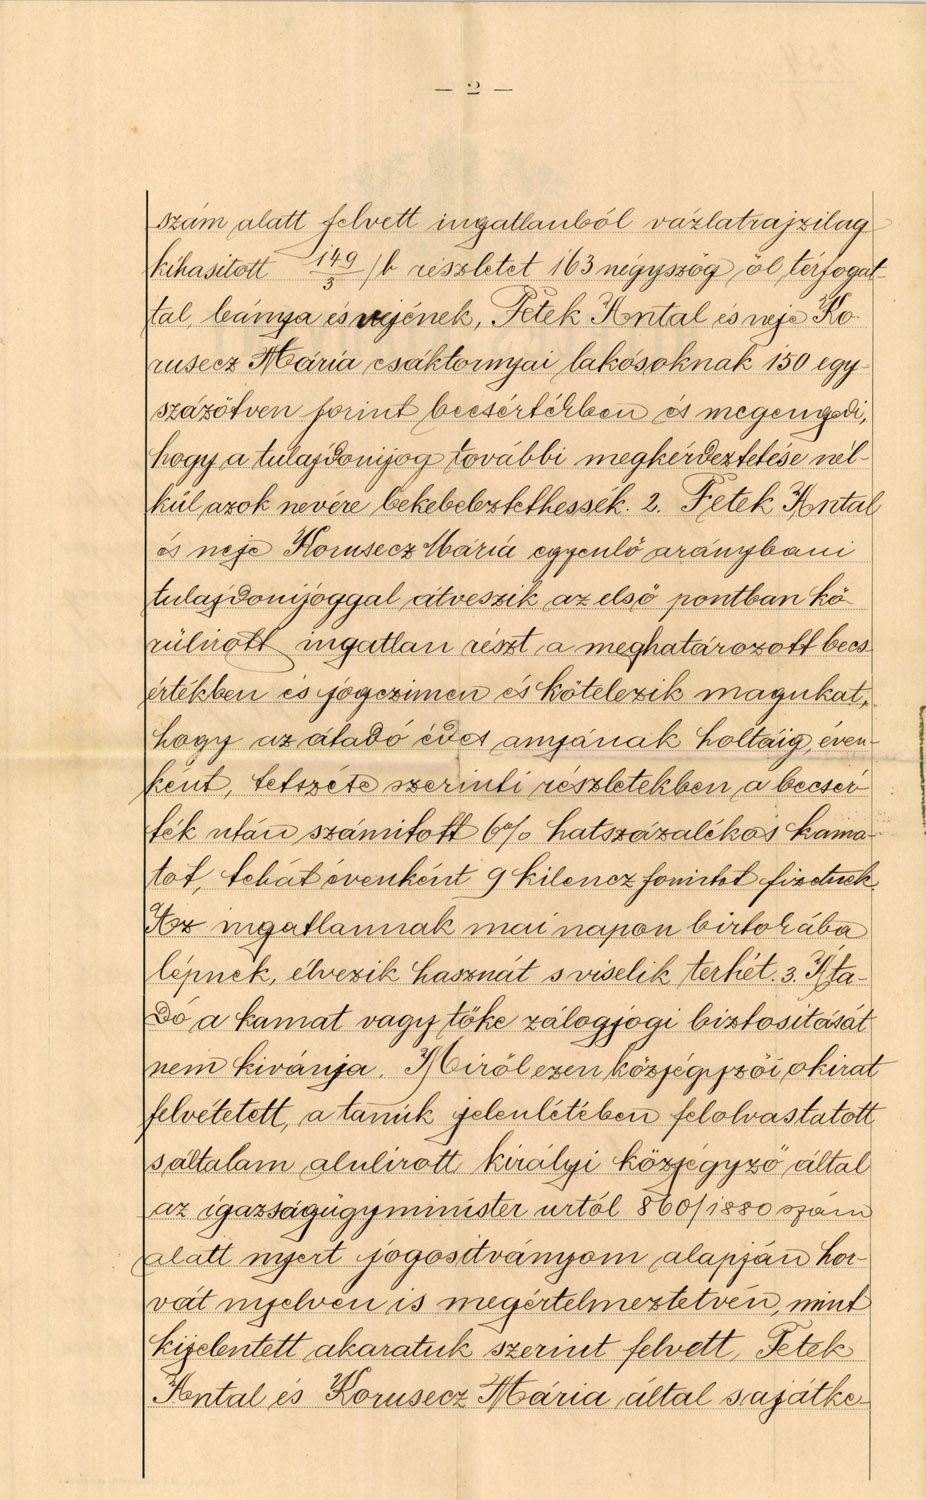 — 2 —
szám alatt felvett ingatlanból vázlatrajzilag
kihasitott 149/3 /b részletet 163 négyszög öl térfogat-
tal, leánya és vejének, Petek Antal és neje Ko-
rusecz Mária csáktornyai lakósoknak 150 egy-
százötven forint becsértékben és megengedi,
hogy a tulajdonijog további megkérdeztetése nél-
kül azok nevére bekebeleztethessék. 2. Petek Antal
és neje Korusecz Mária egyenlő aránybani
tulajdonijoggal átveszik az első pontban kö-
rülirott ingatlan részt a meghatározott becs
értékben és jogczimen és kötelezik magukat,
hogy az átadó édes anyjának holtáig, éven-
ként, tetszése szerinti részletekben a becsér-
ték után számitott 6% hatszázalékos kama-
tot, tehát évenként 9 kilencz forintot fizetnek.
Az ingatlannak mai napon birtokába
lépnek, élvezik hasznát s viselik terhét. 3. Áta-
dó a kamat vagy tőke zálogjogi biztositását
nem kivánja. Miről ezen közjegyzői okirat
felvétetett, a tanúk jelenlétében felolvastatott
s általam alulirott királyi közjegyző által
az igazságügyminister urtól 860/1880 szám
alatt nyert jogositványom alapján hor-
vát nyelven is megértelmeztetvén, mint
kijelentett akaratuk szerint felvett, Petek
Antal és Korusecz Mária által sajátke-